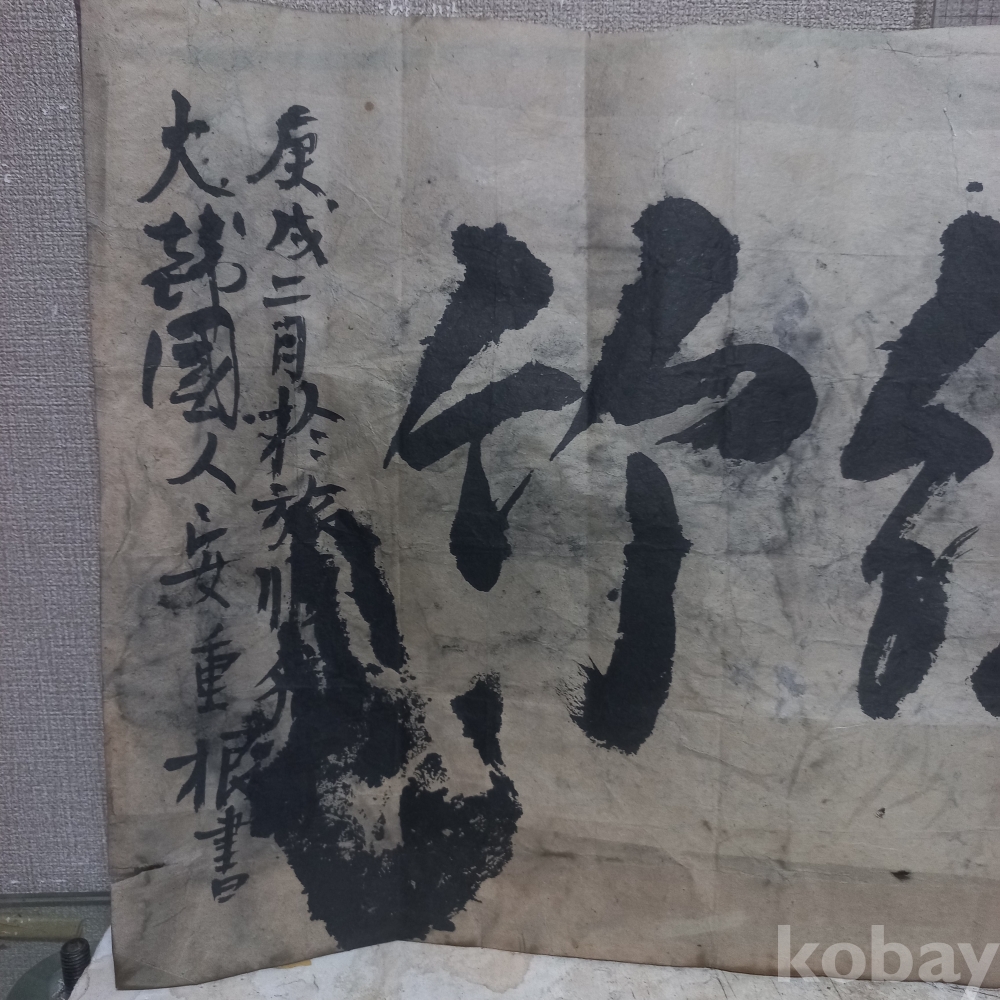 竹
庚戌二月於旅順
大韓國人安重根書
kobay